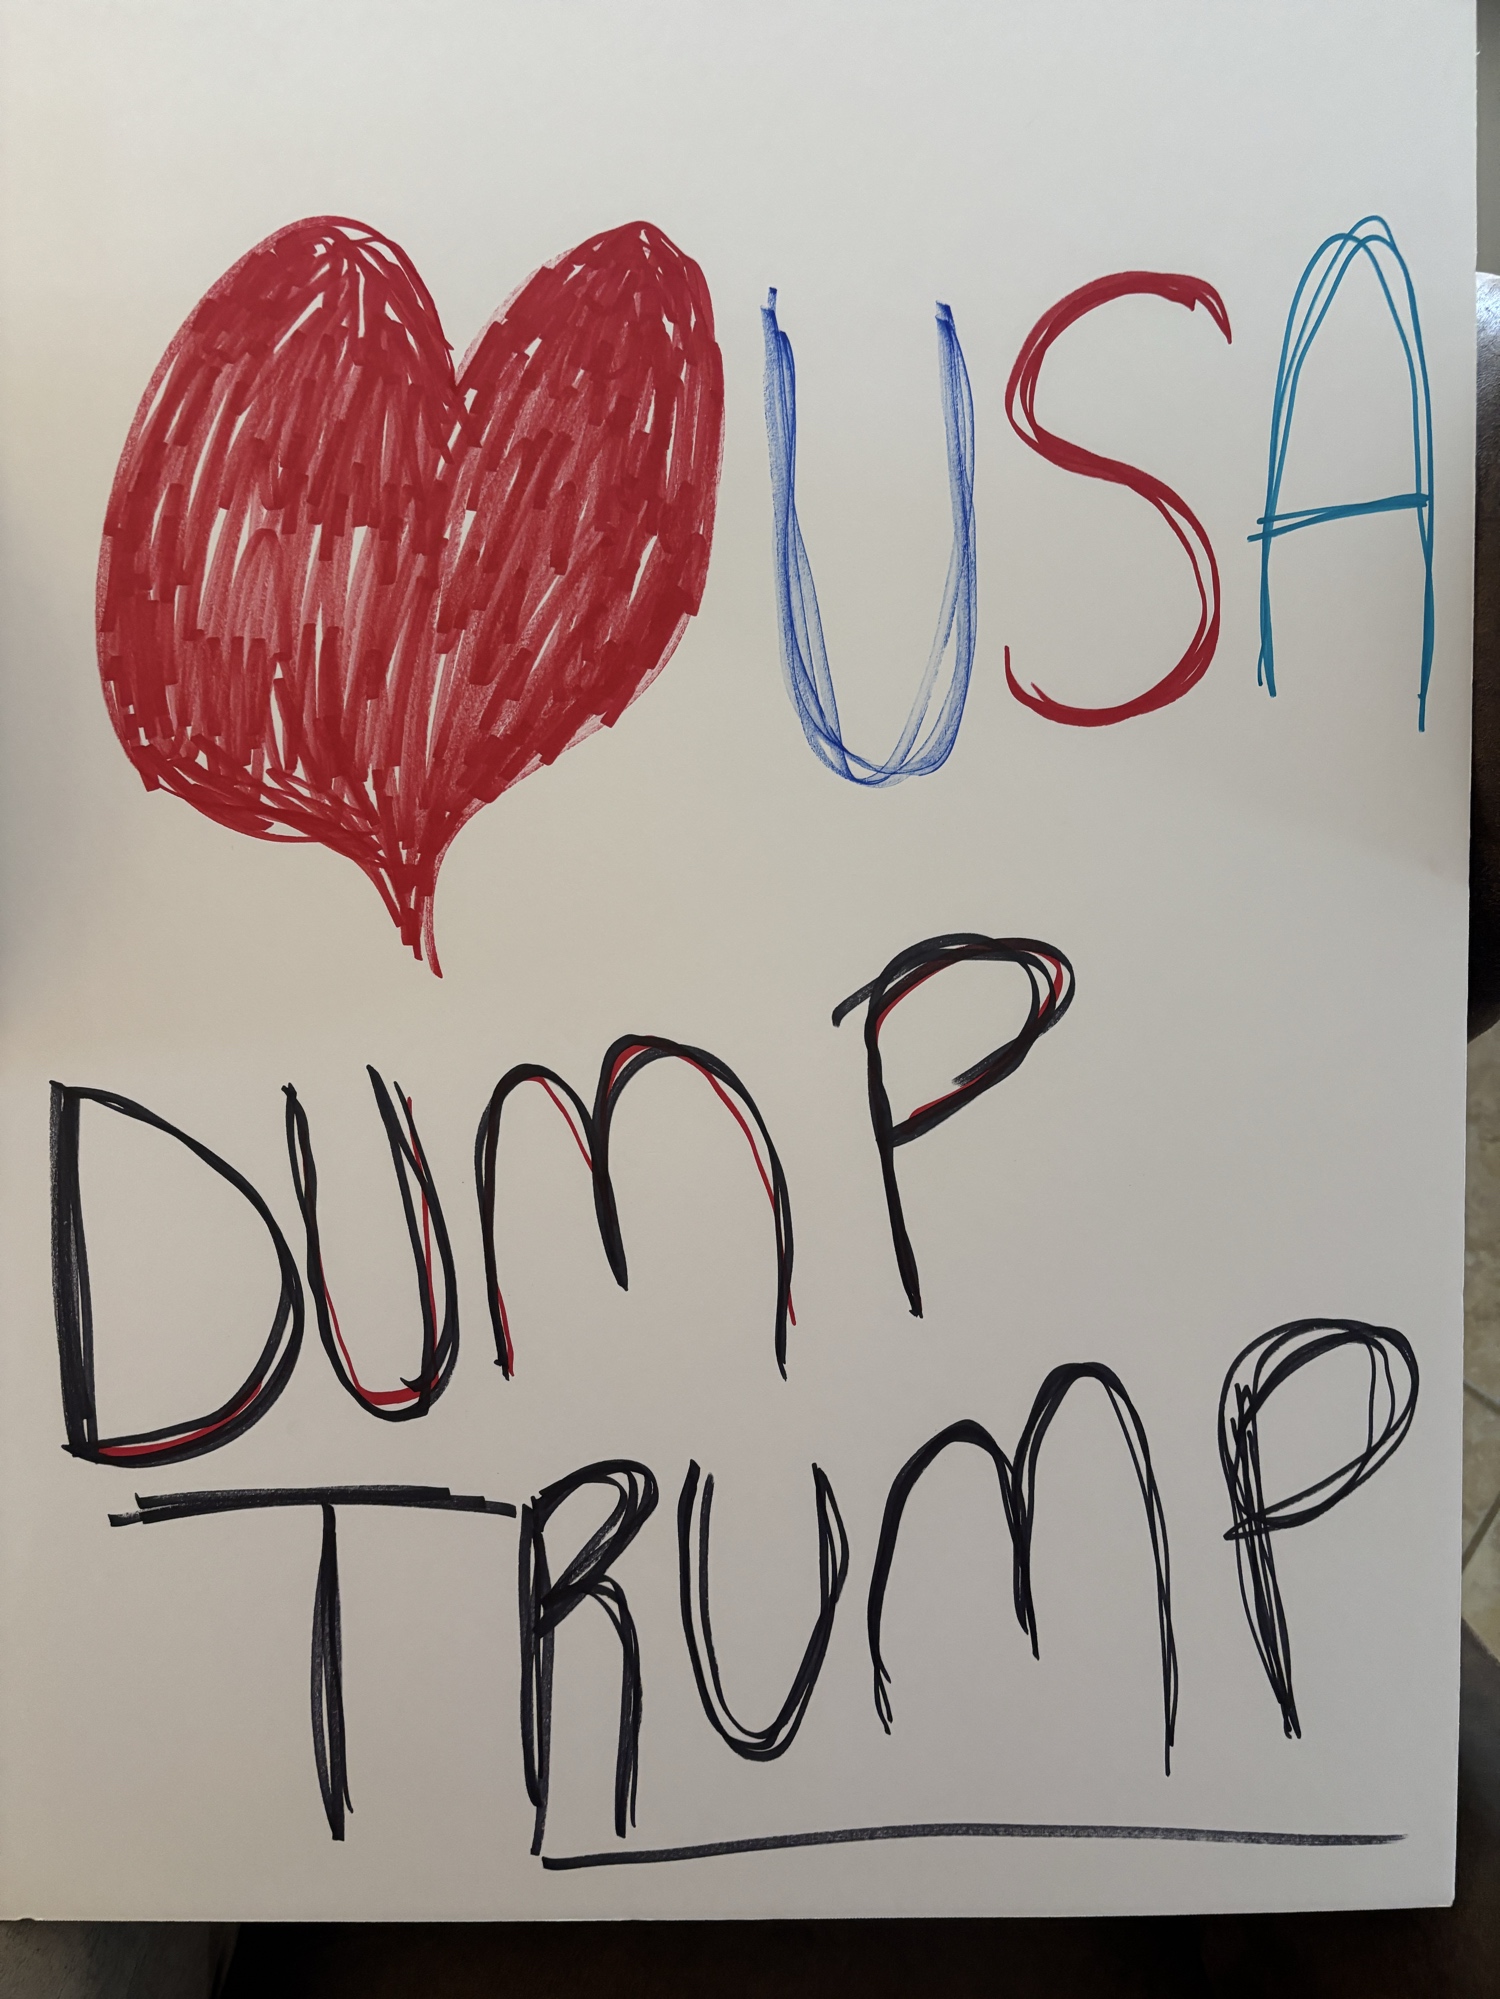 USA
DUMP
TRUMP